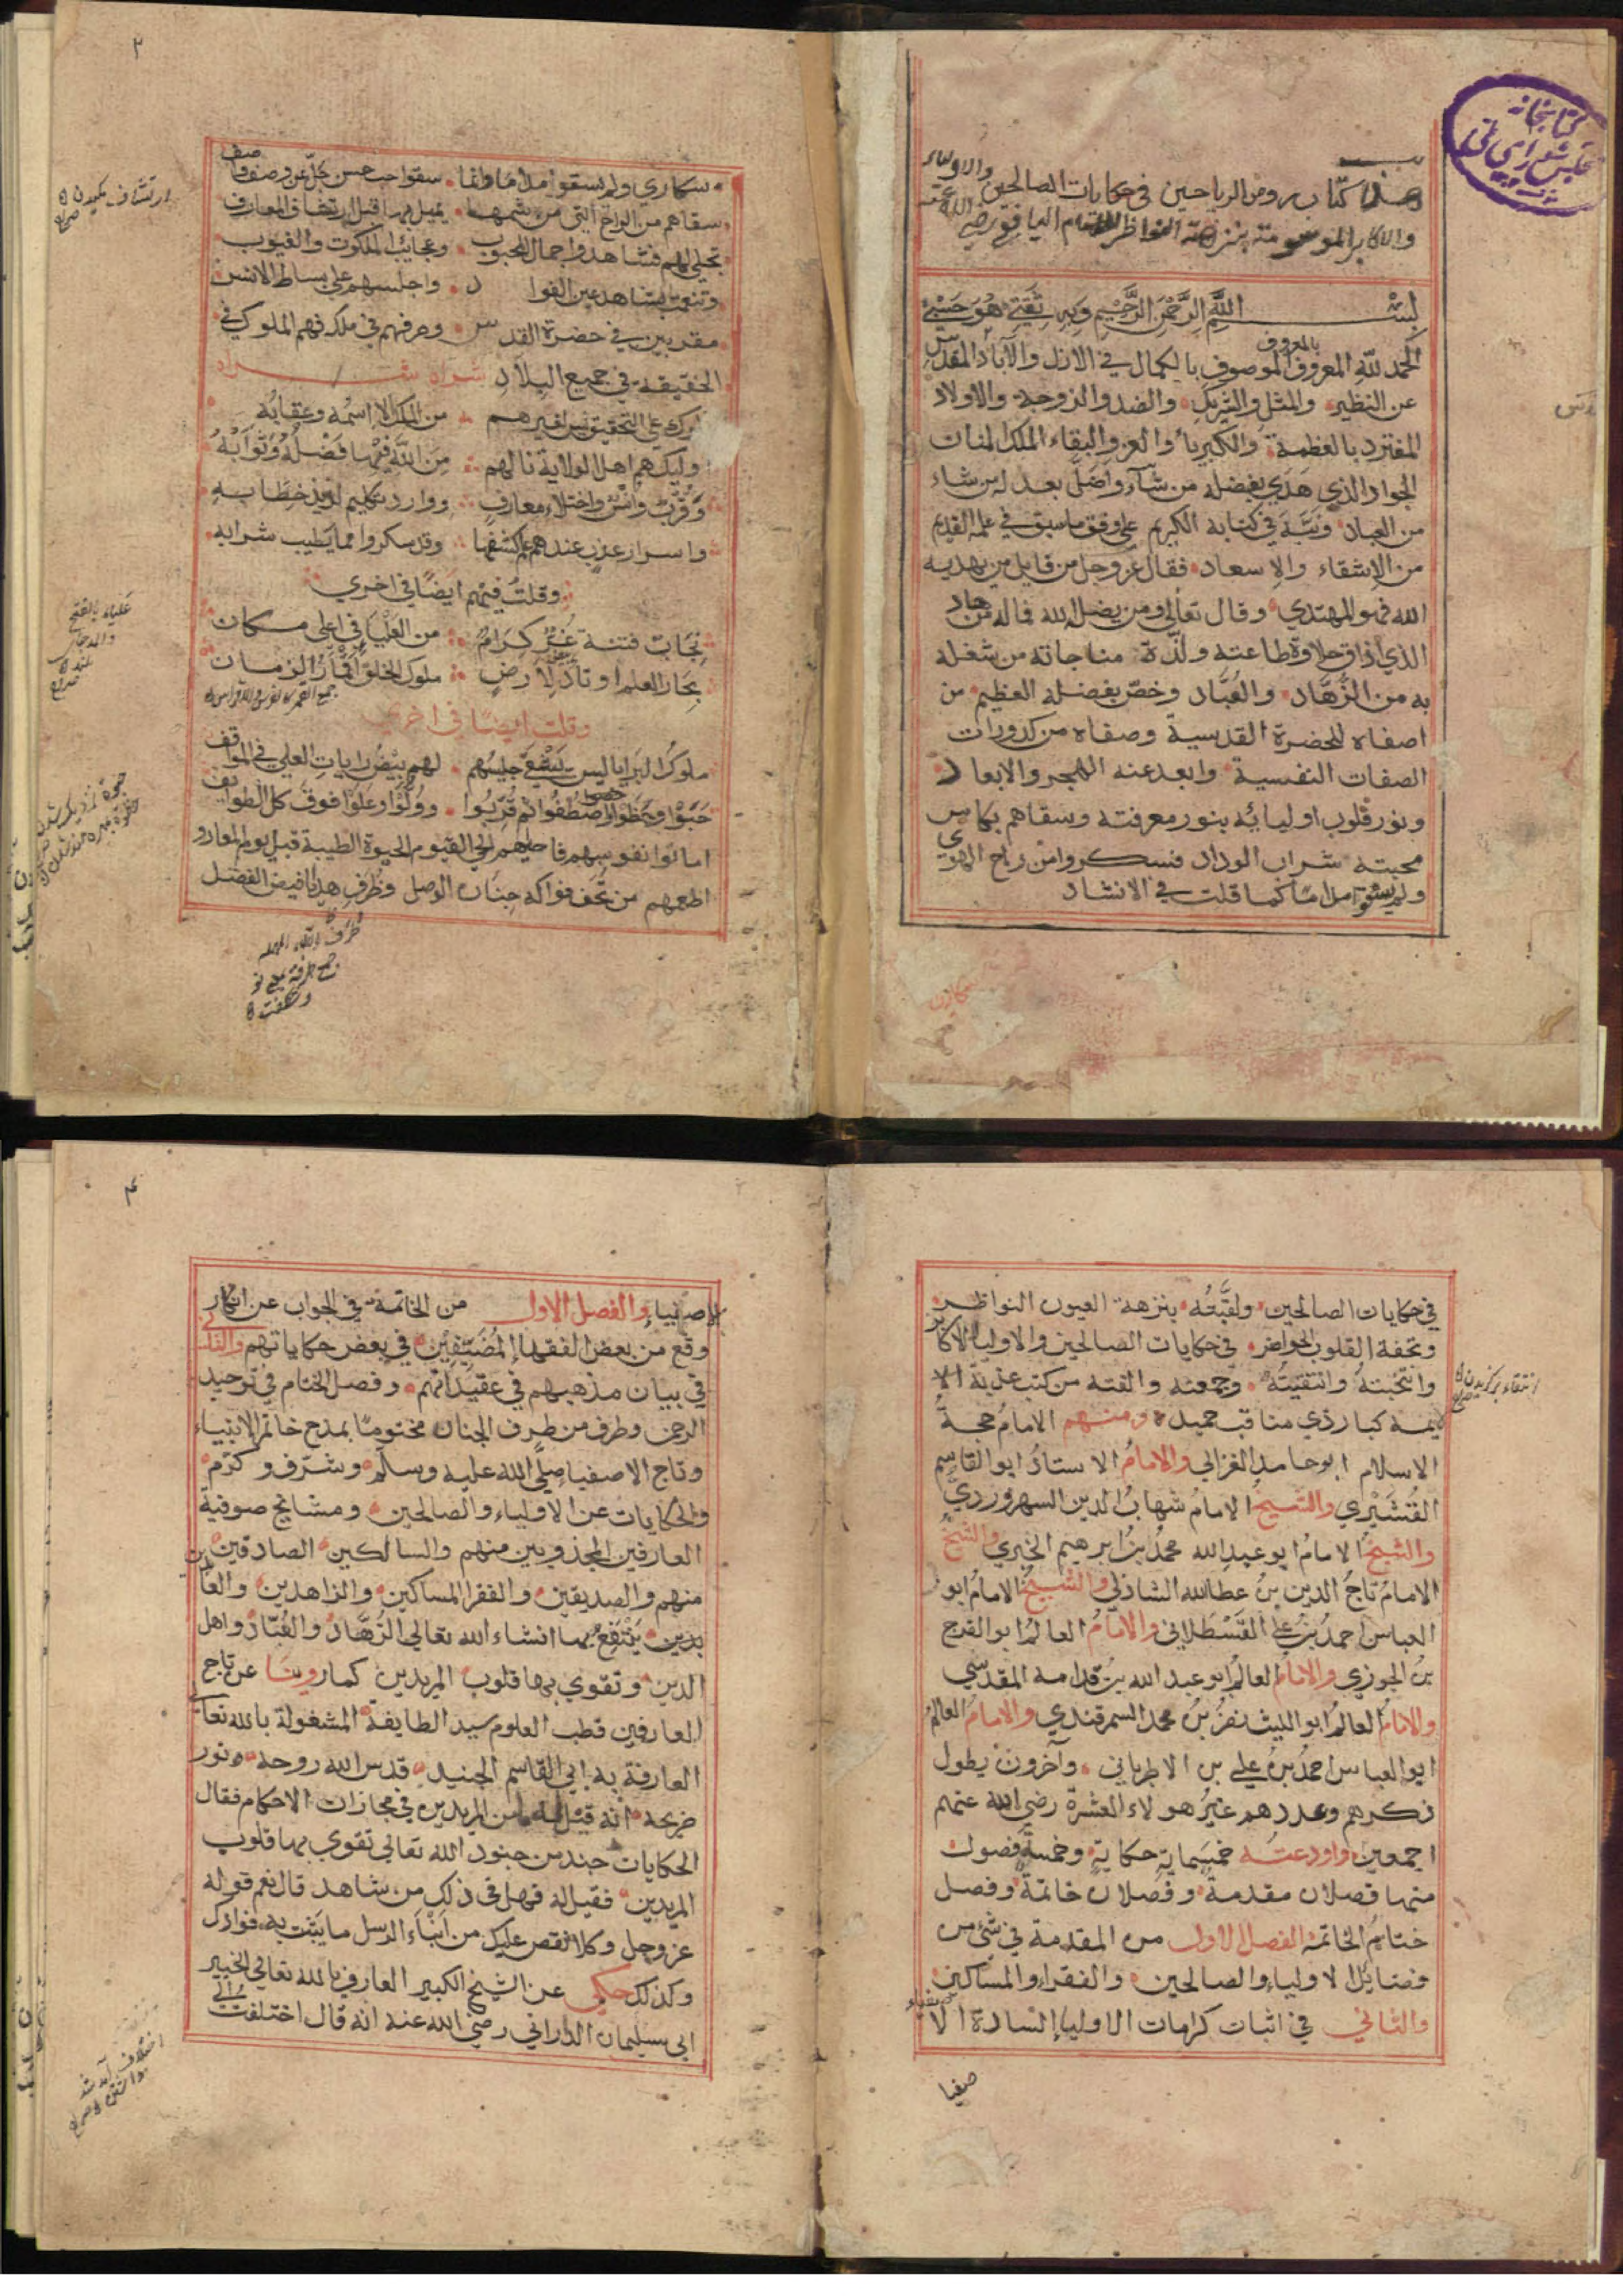 كتابخانه
مجلس شورای ملی
هذا كتاب روض الرياحين في حكايات الصالحين والاولياء
والاكابر الموسومة بنزهة النواظر للامام اليافعي رضي الله عنه
بسم الله الرحمن الرحيم وبه ثقتي هو حسبي
الحمد لله المعروف الموصوف بالكمال في الازل والآباد المقدس
بالمعروف
عن النظير والمثل والشريك والضد والزوجة والاولاد
المفترد بالعظمة والكبرياء والعز والبقاء الملك المنان
الجواد الذي هدي بفضله من شاء واضل بعدله من شاء
من العباد ونبه في كتابه الكريم على وفق ما سبق في علمه القديم
من الاشقاء والاسعاد فقال عز وجل من قايل من يهديه
الله فهو المهتدي وقال تعالى ومن يضلل الله فما له من هاد
الذي اذاق حلاوة طاعته ولذة مناجاته من شغله
به من الزهاد والعباد وخص بفضله العظيم من
اصفاه للحضرة القدسية وصفاه من كدورات
الصفات النفسية وابعد عنه الهجر والابعاد
ونور قلوب اوليائه بنور معرفته وسقاهم بكاس
محبته شراب الوداد فسكروا من راح الهوى
ولم يسقوا مداما كما قلت في الانشاد
٢
سكاري ولم يسقوا مداما وانما سقوا حب حسن جل عن وصف واصف
سقاهم من الراح التي من شمها يميل بها قبل ارتشاف المعارف
تجلى لهم فشاهدوا جمال المحبوب وعجايب الملكوت والغيوب
وتنعمت بمشاهد عين الفواد واجلسهم على بساط الانس
مقربين في حضرة القدس وصرفهم في ملكه فهم الملوك في
الحقيقة في جميع البلاد
ملوك على التحقيق ليس لغيرهم من الملك الا اسمه وعقابه
اوليك هم اهل الولاية نالهم من الله فيها فضله وثوابه
وقرب وانس واجتلاء معارف ووارد تكليم لذيذ خطابه
واسرار عزيب عندهم علم كشفها وقد سكروا مما يطيب شرابه
وقلت فيهم ايضا في اخري
نجاب فتنة غر كرام من العلياء في اعلى مكان
بحار العلم اوتاد لارض ملوك الخلق اقمار الزمان
وقلت ايضا في اخري
ملوك البرايا ليس يشقى جليسهم لهم بيض رايات العلي في المواقف
حبوا وحظوا واصطفوا ثم قربوا وولوا وعلوا فوق كل الطوايف
اماتوا نفوسهم فاحياهم الحي القيوم الحيوة الطيبة قبل يوم المعاد و
اطعمهم من تحف فواكه جنان الوصل وظرف هدايا فيض الفضل
ارتشاف مكيدن
علياء بالفتح
والمد جاى
بلند
في حكايات الصالحين ولقبته بنزهة العيون النواظر
وتحفة القلوب الحواضر في حكايات الصالحين والاولياء الاكابر
وانتخبته وانتقيته وجمعته والفته من كتب عديدة الا
يمة كبار ذي مناقب حميدة ومنهم الامام حجة
الاسلام ابو حامد الغزالي والامام الاستاذ ابو القاسم
القشيري والشيخ الامام شهاب الدين السهروردي
والشيخ الامام ابو عبد الله محمد بن ابرهيم الخبري والشيخ
الامام تاج الدين بن عطا الله الشاذلي والشيخ الامام ابو
العباس احمد بن علي القسطلاني والامام العالم ابو الفرج
بن الجوزي والامام العالم ابو عبد الله بن قدامه المقدسي
والامام العالم ابو الليث نصر بن محمد السمرقندي والامام العالم
ابو العباس احمد بن علي بن الاطرياني وآخرون يطول
ذكرهم وعددهم غير هولاء العشرة رضي الله عنهم
اجمعين واودعته خمسماية حكاية وخمسة فصول
منها فصلان مقدمة وفصلان خاتمة وفصل
ختام الخاتمة الفصل الاول من المقدمة في شيء من
فضايل الاولياء والصالحين والفقراء والمساكين
والثاني في اثبات كرامات الاولياء السادة الا
صفيا
انتقاء برگزيدن
٤
الاصفياء والفصل الاول من الخاتمة في الجواب عن انكار
وقع من بعض الفقهاء المضيقين في بعض حكاياتهم والثاني
في بيان مذهبهم في عقيداتهم وفصل الختام في توحيد
الرحمن وطرف من طرف الجنان مختوما بمدح خاتم الانبياء
وتاج الاصفيا صلى الله عليه وسلم وشرف وكرم
والحكايات عن الاولياء والصالحين ومشايخ صوفية
العارفين المجذوبين منهم والسالكين الصادقين
منهم والصديقين والفقرا المساكين والزاهدين والعا
بدين ينتفع بها انشاء الله تعالى الزهاد والعباد واهل
الدين وتقوي بها قلوب المريدين كما روينا عن تاج
العارفين قطب العلوم سيد الطايفة المشغولة بالله تعالى
العارفة به ابي القاسم الجنيد قدس الله روحه ونور
ضريحه انه قيل له ما من المريدين في مجازات الاحكام فقال
الحكايات جند من جنود الله تعالى تقوي بها قلوب
المريدين فقيل له فهل في ذلك من شاهد قال نعم قوله
عز وجل وكلا نقص عليك من انباء الرسل ما نثبت به فوادك
وكذلك حكي عن الشيخ الكبير العارف بالله تعالى الخبير
ابي سليمان الداراني رضي الله عنه انه قال اختلفت الى